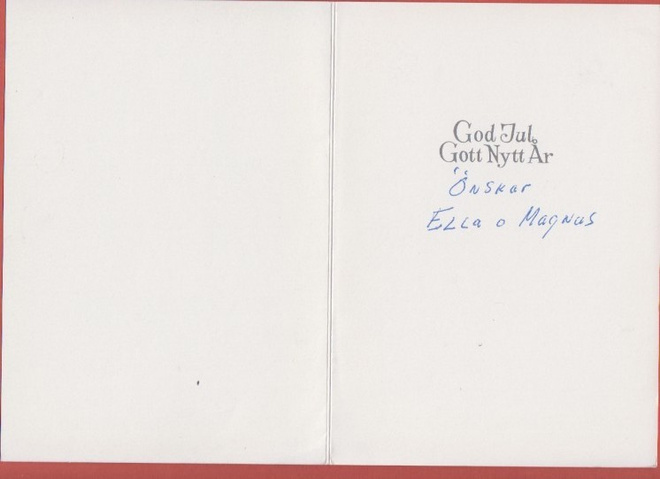 God Jul,
Gott Nytt År
Önskar
Ella o Magnus